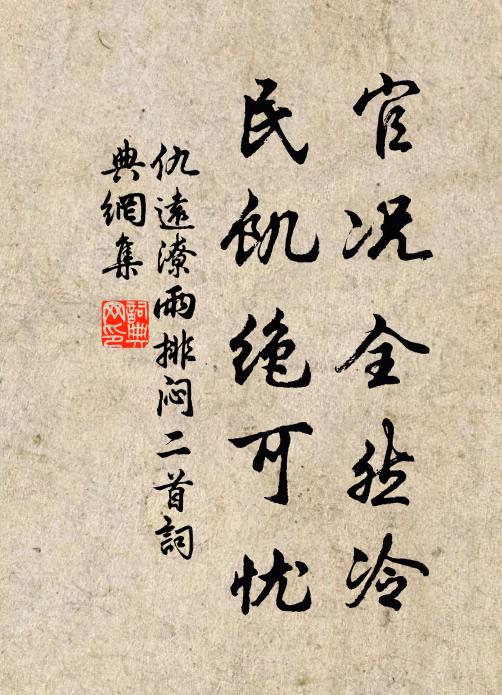 官况全然冷
民飢绝可忧
仇遠潦雨排闷二首詞
典網集
詞典
网印